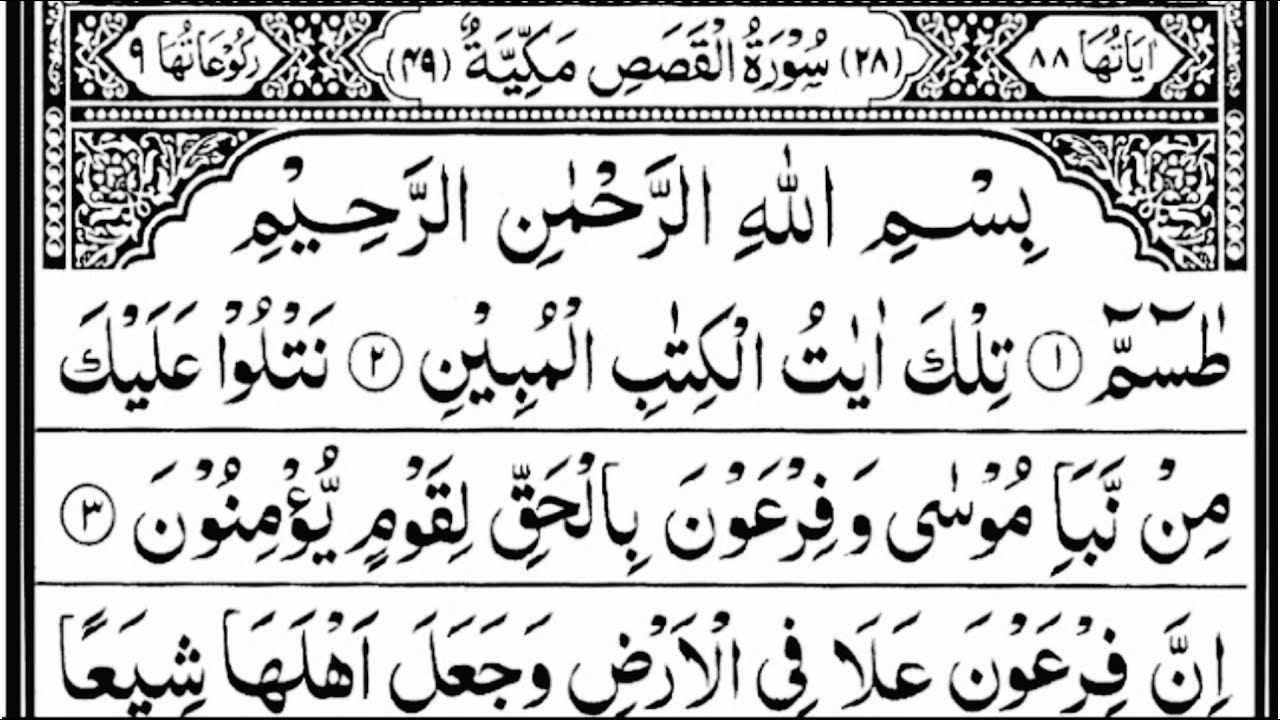 اٰيَاتُهَا ٨٨ (٢٨) سُوْرَةُ الْقَصَصِ مَكِّيَّةٌ (٤٩) رُكُوْعَاتُهَا ٩
بِسْمِ اللهِ الرَّحْمٰنِ الرَّحِيْمِ
طٰسٓمّٓ ۝١ تِلْكَ اٰيٰتُ الْكِتٰبِ الْمُبِيْنِ ۝٢ نَتْلُوْا عَلَيْكَ
مِنْ نَّبَاِ مُوْسٰى وَفِرْعَوْنَ بِالْحَقِّ لِقَوْمٍ يُّؤْمِنُوْنَ ۝٣
اِنَّ فِرْعَوْنَ عَلَا فِى الْاَرْضِ وَجَعَلَ اَهْلَهَا شِيَعًا